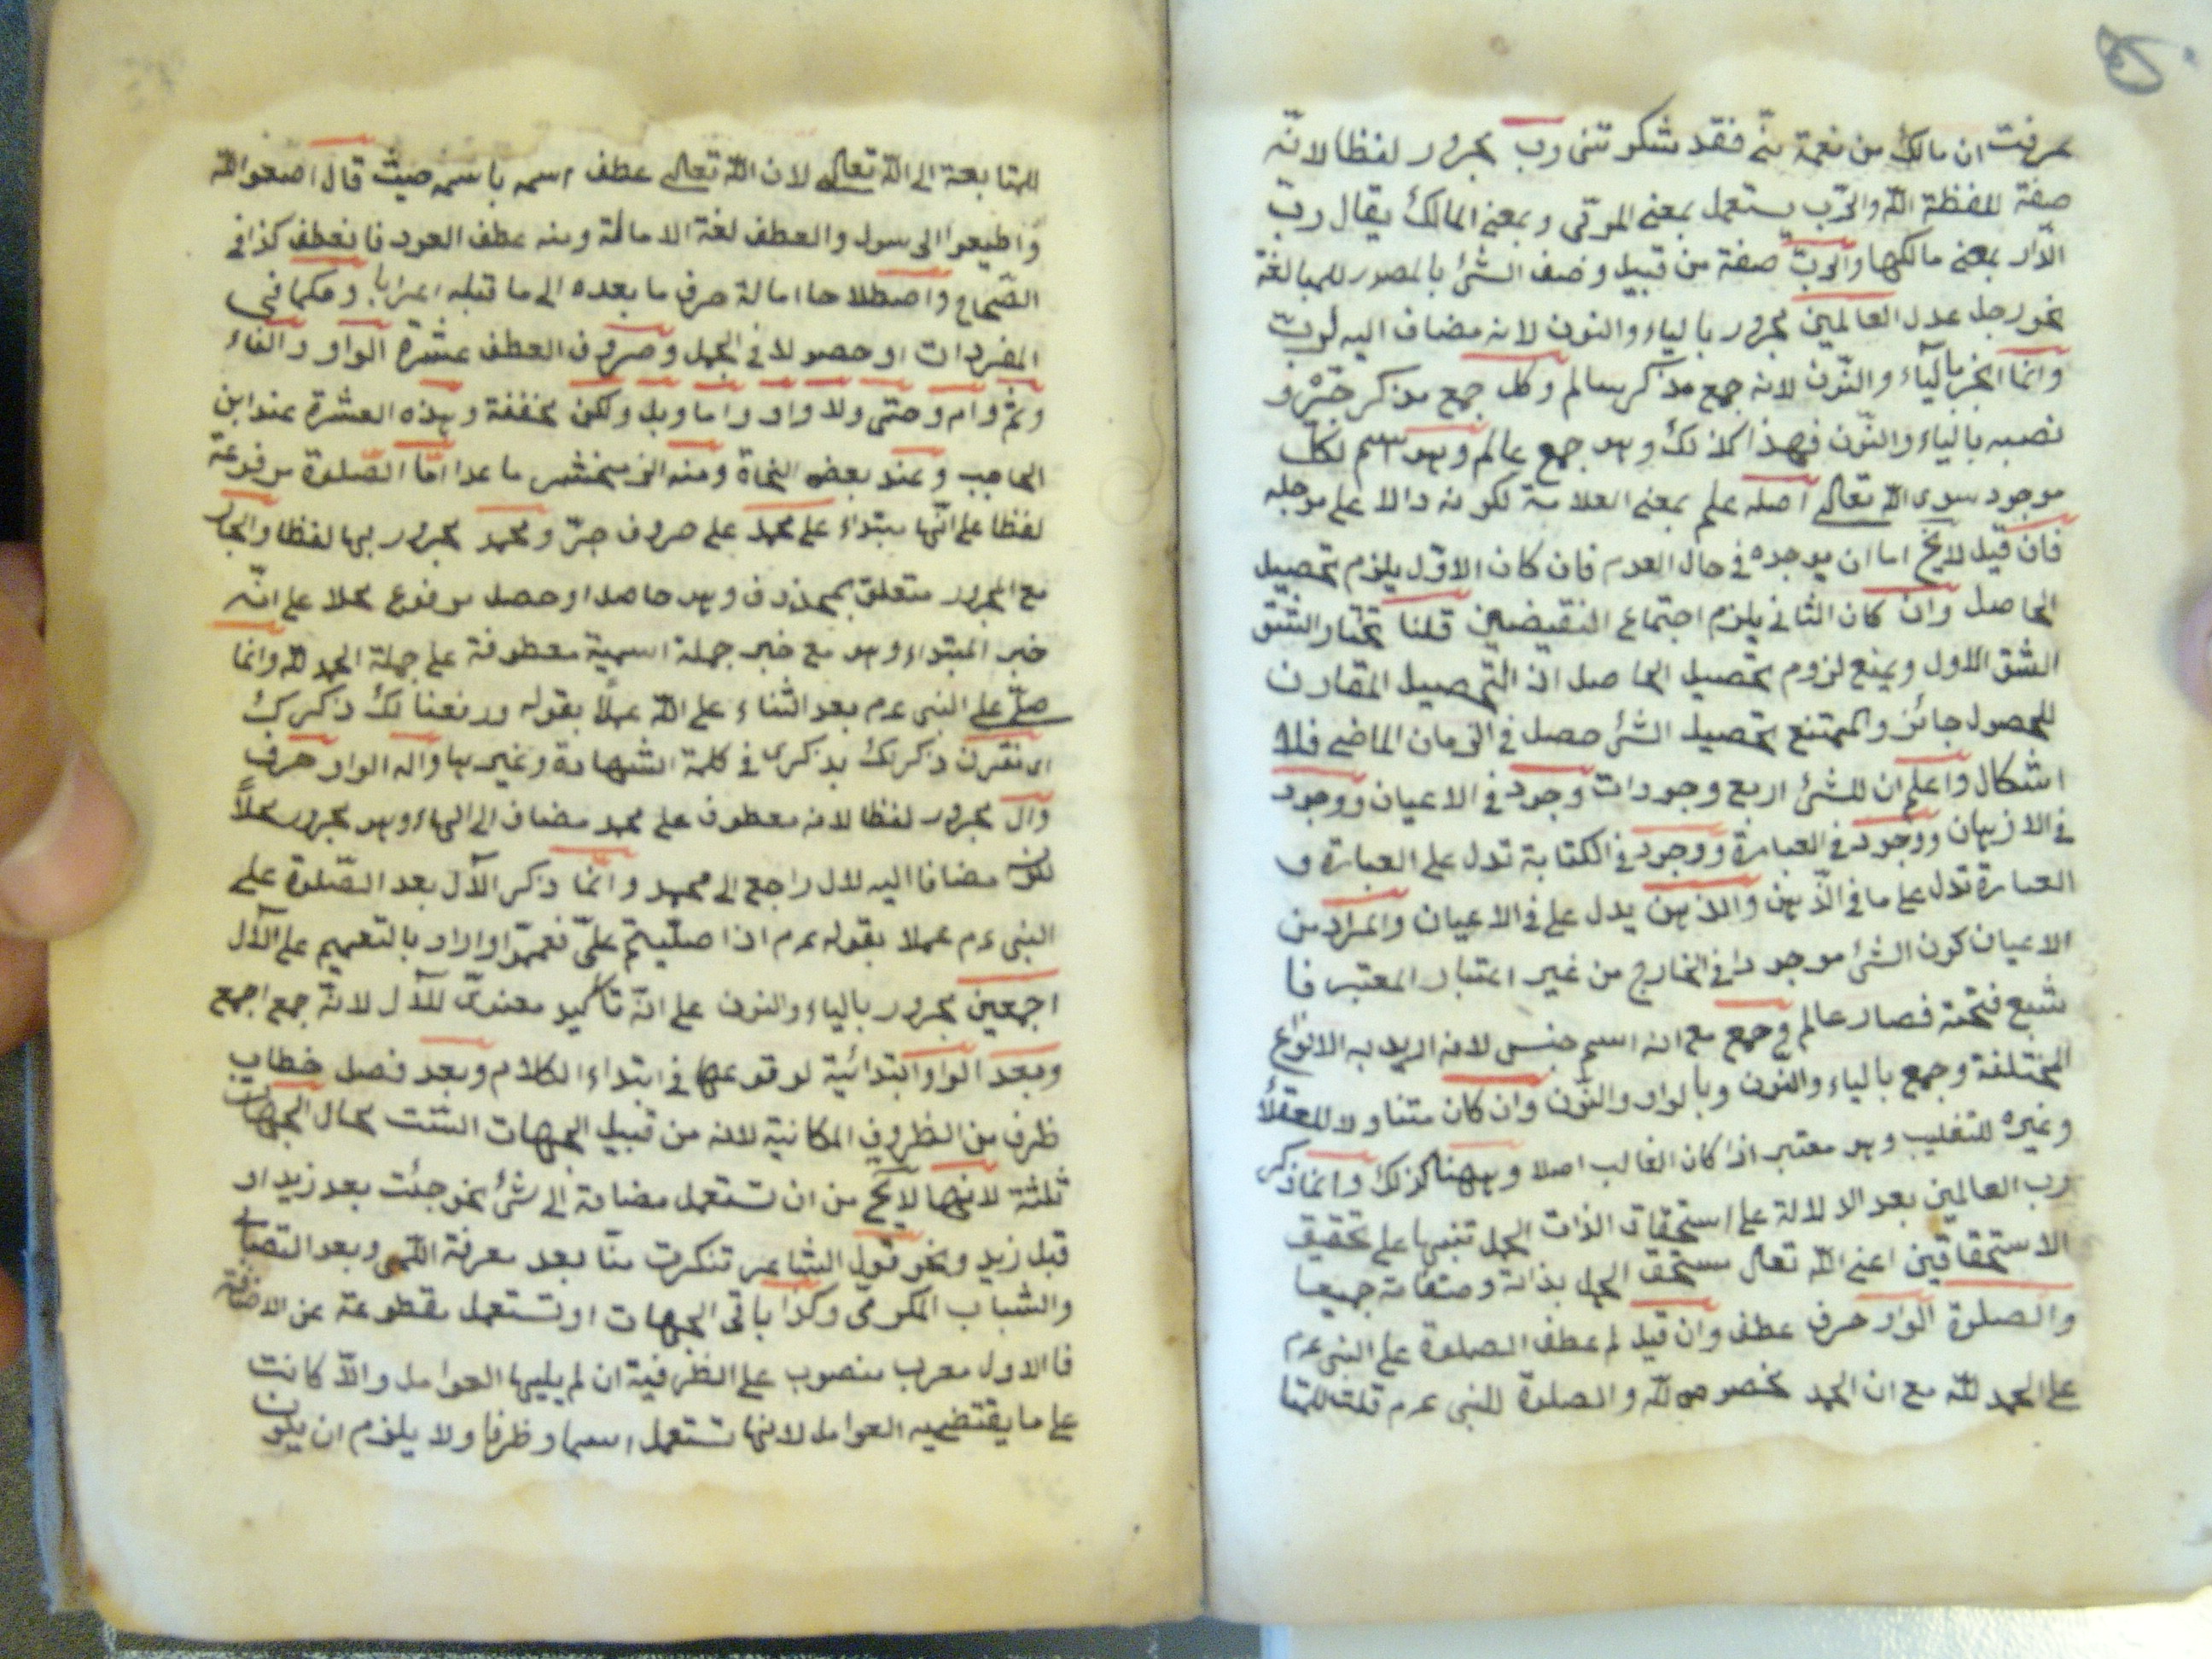 عرفت ان مالك من نعمة ثم فقد شكوتنى رب مجرور لفظا لانه
صفة للفظة الله والرب يستعمل بمعنى المربى وبمعنى المالك يقال رب
الدار بمعنى مالكها والرب صفة من قبيل وصف الشئ بالمصدر للمبالغة
نحو رجل عدل العالمين مجرور بالياء والنون لانه مضاف اليه لرب
وانما انجر بالياء والنون لانه جمع مذكر سالم وكل جمع مذكر جره و
نصبه بالياء والنون فهذا كذلك وهو جمع عالم وهو اسم لكل
موجود سوى الله تعالى اصله علم بمعنى العلامة لكونه دالا على موجده
فان قيل لايخ اما ان يوجده فى حال العدم فان كان الاول يلزم تحصيل
الحاصل وان كان الثانى يلزم اجتماع النقيضين قلنا نختار الشق
الشق الاول ويمنع لزوم تحصيل الحاصل اذ التحصيل المقارن
للحصول جائز والممتنع تحصيل الشئ حصل فى الزمان الماضى فلا
اشكال واعلم ان للشئ اربع وجودات وجود فى الاعيان ووجود
فى الاذهان ووجود فى العبارة ووجود فى الكتابة تدل على العبارة و
العبارة تدل على ما فى الذهن والذهن يدل على فى الاعيان والمراد من
الاعيان كون الشئ موجودا فى الخارج من غير اعتبار المعتبر فا
شبع فتحته فصار عالم وجمع مع انه اسم جنس لانه اريد به الانواع
المختلفة وجمع بالياء والنون وبالواو والنون وان كان متناولا للعقلاء
وغيره للتغليب وهو معتبر اذا كان الغالب اصلا وههنا كذلك وانما ذكر
رب العالمين بعد الدلالة على استحقاق الذات الحمد تنبيها على تحقيق
الاستحقاقين اعنى الله تعالى مستحق الحمد بذاته وصفاته جميعا
والصلوة الواو حرف عطف وان قيل لم عطف الصلوة على النبى عم
على الحمد لله مع ان الحمد مخصوص لله والصلوة للنبى عم قلت للمتا
للمتابعة الى الله تعالى لان الله تعالى عطف اسمه باسمه حيث قال اطيعوا الله
واطيعوا الرسول والعطف لغة الامالة ومنه عطف العود فانعطف كذا فى
الصحاح واصطلاحا امالة حرف ما بعده الى ما قبله اعرابا وحكما فى
المفردات او حصولا فى الجمل وحروف العطف عشرة الواو والفاء
وثم وام وحتى ولا واو واما وبل ولكن مخففة وهذه العشرة عند ابن
الحاجب وعند بعض النحاة ومنه الزمخشرى ما عدا اما الصلوة مرفوعة
لفظا على انها مبتداء على محمد على حروف جر ومحمد مجرور بها لفظا والجار
مع المجرور متعلق بمحذوف وهو حاصل او حصل مرفوع محلا على انه
خبر المبتداء وهو مع خبر جملة اسمية معطوفة على جملة الحمد لله وانما
صلى على النبى عم بعد الثناء على الله عملا بقوله ورفعنا لك ذكرك
اى نقرن ذكرك بذكرى فى كلمة الشهادة وغيرها واله الواو حرف
وال مجرور لفظا لانه معطوف على محمد مضاف الى الهاء وهو مجرور محلا
لكونه مضافا اليه لال راجع الى محمد وانما ذكر الآل بعد الصلوة على
النبى عم عملا بقوله عم اذا صليتم علىّ فعمموا واراد بالتعميم على الآل
اجمعين مجرور بالياء والنون على انه تاكيد معنوى للآل لانه جمع اجمع
وبعد الواو ابتدائية لوقوعها فى ابتداء الكلام وبعد فصل خطاب
ظرف من الظروف المكانية لانه من قبيل الجهات الستت كحال الجهات
ثلثة لانها لايخ من ان تستعمل مضافة الى شئ نحو جئت بعد زيد او
قبل زيد ونحو قول الشاعر تنكرت منا بعد معرفة اللمى وبعد التصابى
والشباب المكرمى وكذا باقى الجهات او تستعمل مقطوعة عن الاضافة
فالاول معرب منصوب على الظرفية ان لم يليها العوامل والا كانت
على ما يقتضيه العوامل لانها تستعمل اسما وظرفا ولا يلزم ان يكون